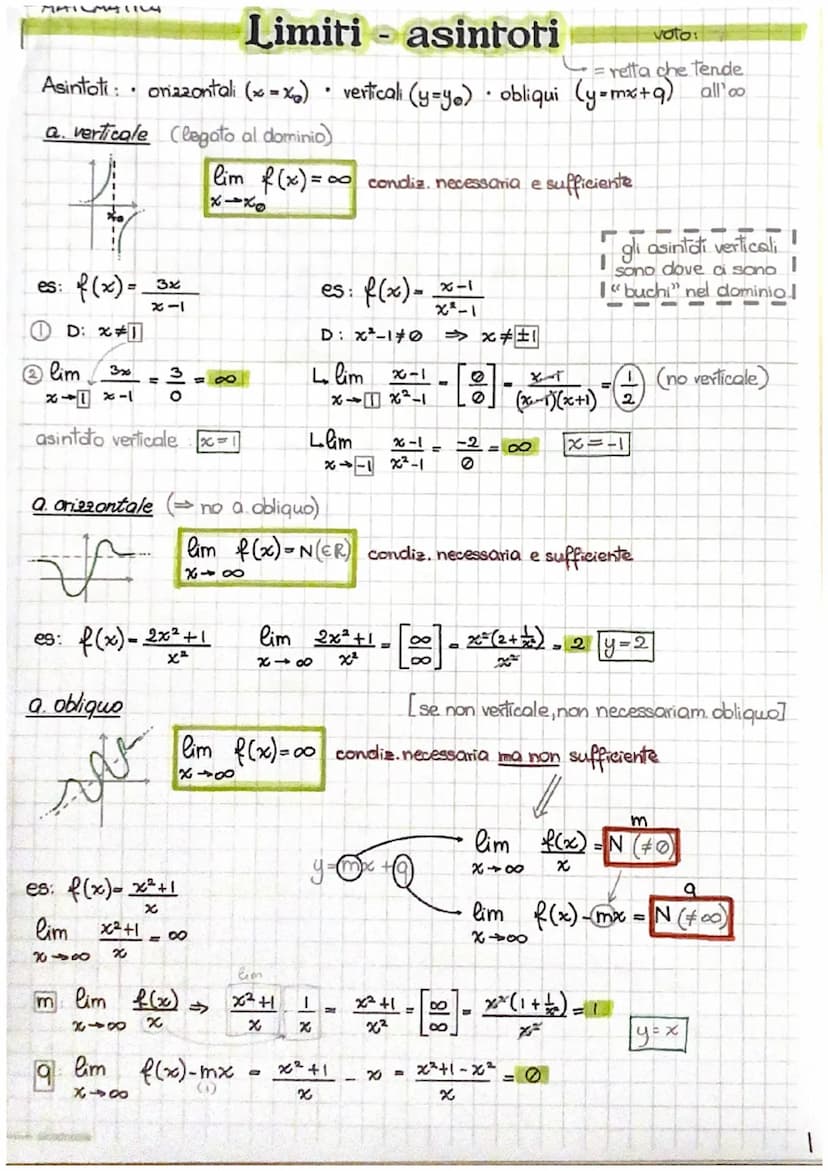 MATEMATICA
Limiti - asintoti
voto:
= retta che tende
all'∞
Asintoti: • orizzontali (x=x₀) • verticali (y=y₀) • obliqui (y=mx+q)
a. verticale (legato al dominio)
lim f(x)=∞
x→x₀
condiz. necessaria e sufficiente
x₀
gli asintoti verticali
sono dove ci sono
"buchi" nel dominio
es: f(x)= 3x/(x-1)
① D: x≠1
② lim 3x/(x-1) = 3/0 = ∞
x→1
asintoto verticale x=1
es: f(x)= (x-1)/(x²-1)
D: x²-1≠0 ⇒ x≠±1
lim (x-1)/(x²-1) = [0/0] = (x-1)/((x-1)(x+1)) = 1/2 (no verticale)
x→1
lim (x-1)/(x²-1) = -2/0 = ∞ x=-1
x→-1
a. orizzontale (⇒ no a. obliquo)
lim f(x)=N(∈R)
x→∞
condiz. necessaria e sufficiente
es: f(x)= (2x²+1)/x² lim (2x²+1)/x² = [∞/∞] = x²(2+1/x²)/x² = 2 y=2
x→∞
a. obliquo
[se non verticale, non necessariam. obliquo]
lim f(x)=∞
x→∞
condiz. necessaria ma non sufficiente
y=mx+q
m
lim f(x)/x = N (≠0)
x→∞
q
lim f(x)-mx = N (≠∞)
x→∞
es: f(x)= (x²+1)/x
lim (x²+1)/x = ∞
x→∞
lim
m: lim f(x)/x ⇒ (x²+1)/x · 1/x = (x²+1)/x² = [∞/∞] = x²(1+1/x²)/x² = 1
x→∞
y=x
q: lim f(x)-mx = (x²+1)/x - x = (x²+1-x²)/x = 0
x→∞ (1)
1